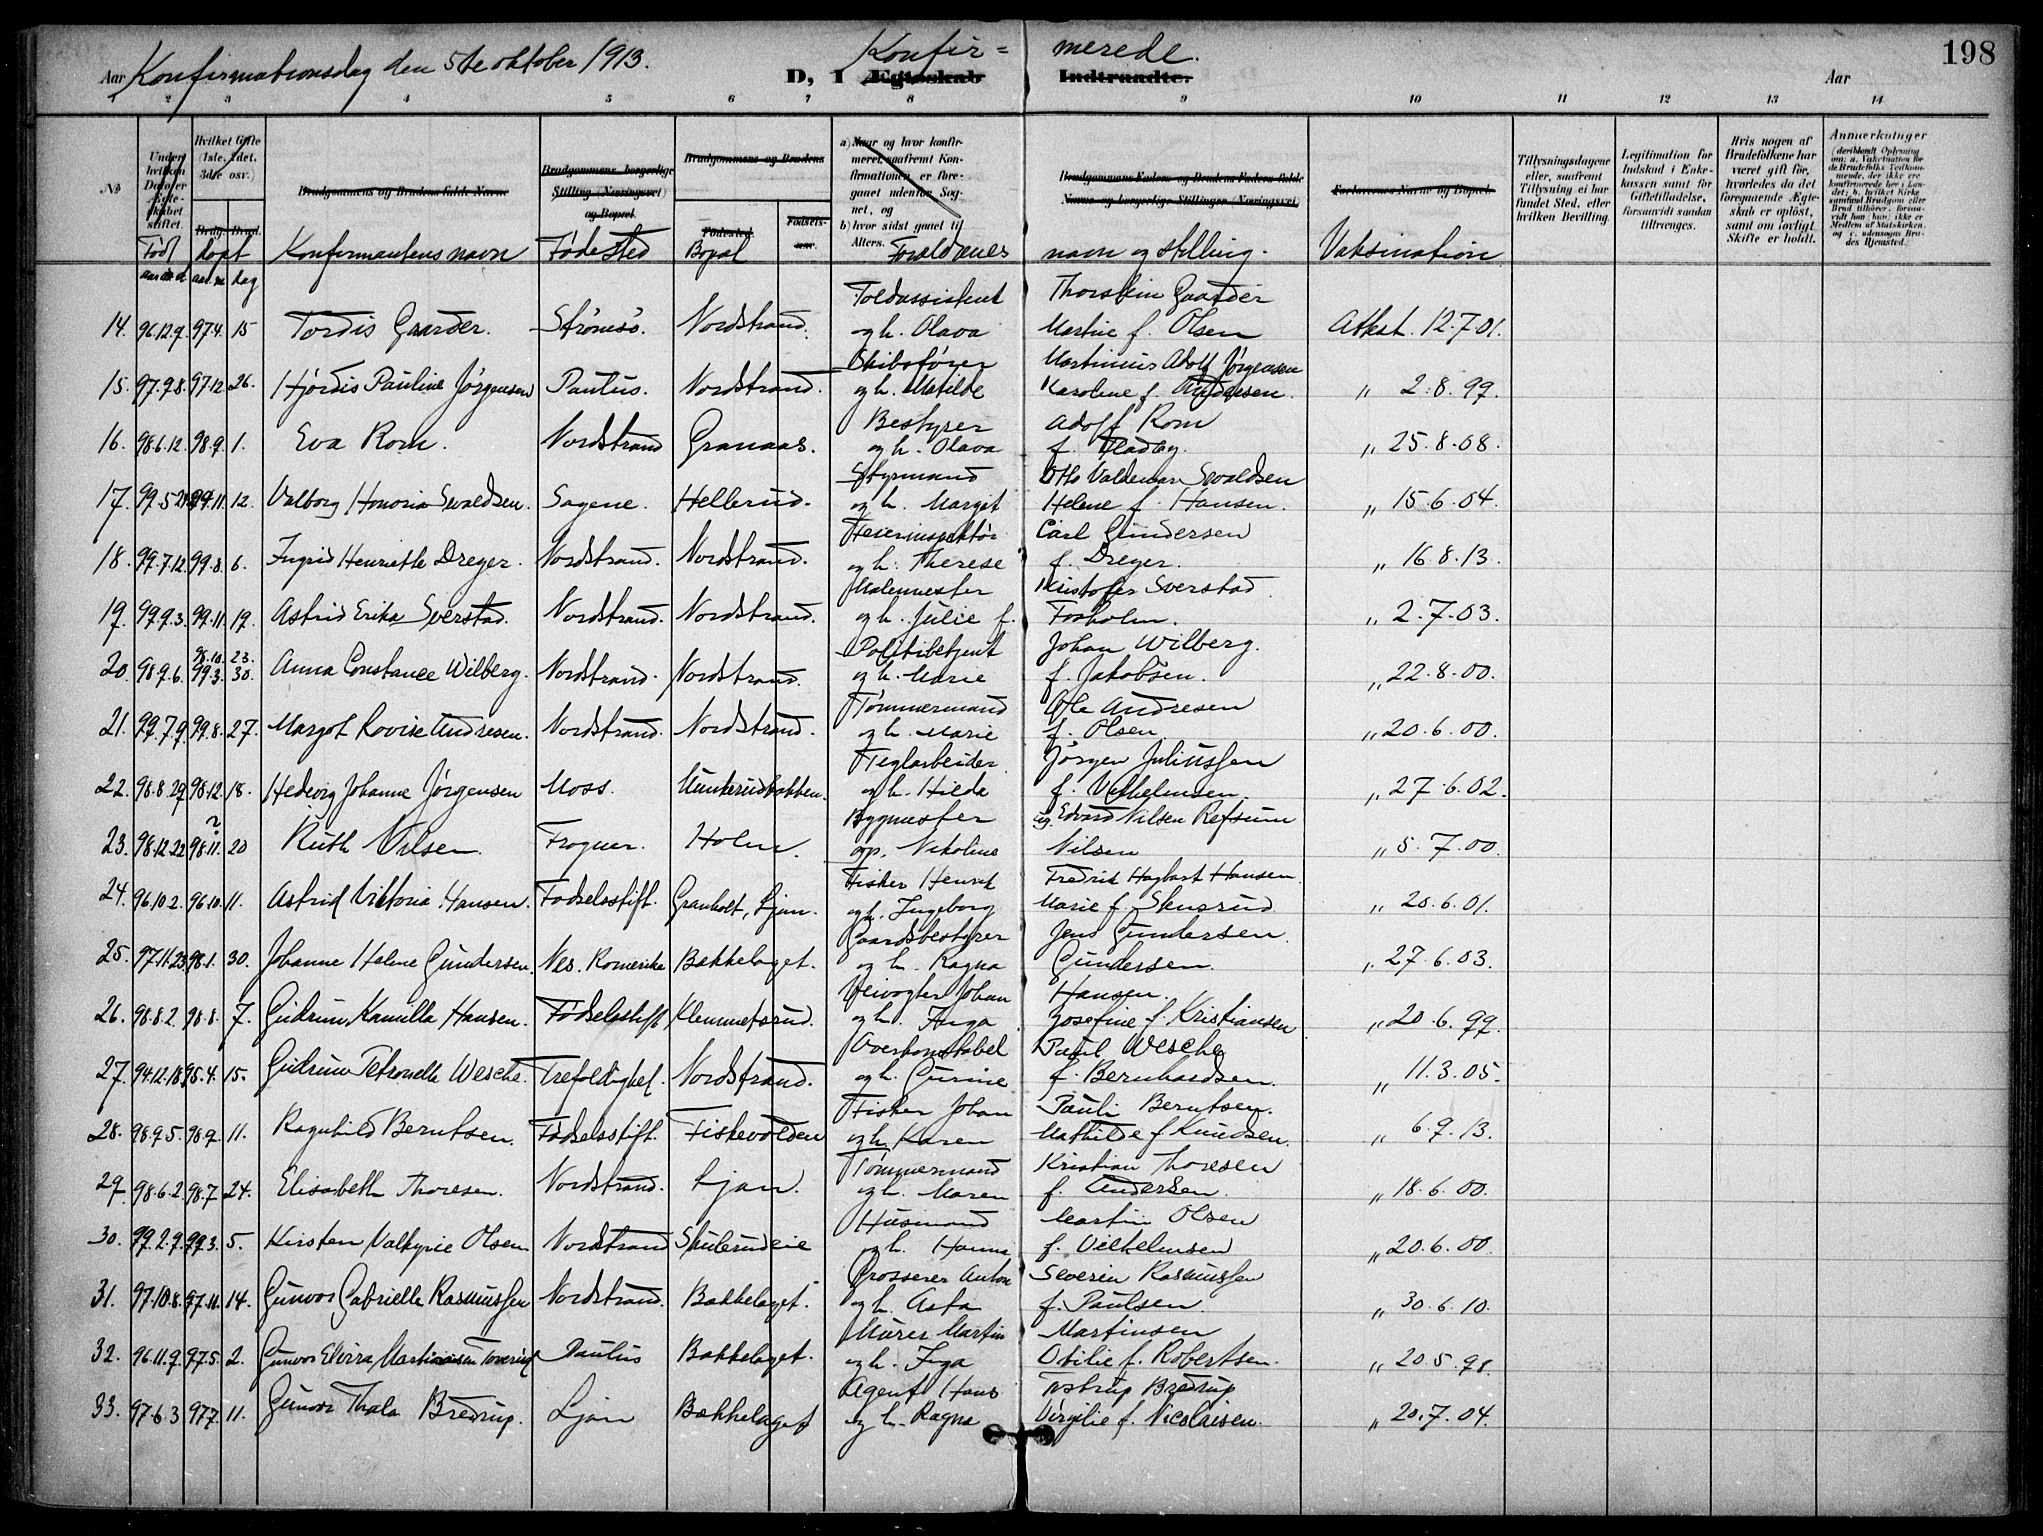 Konfirmationsdag den 5te oktober 1913.
Konfir= merede.
198
Aar D, I Ægteskab Indtraadte. Aar
1 2 3 4 5 6 7 8 9 10 11 12 13 14
No
Under hvilken Dato er Ægteskabet stiftet.
Hvilket Gifte (1ste, 2det, 3die osv.)
Brudg. Brud.
Brudgommens og Brudens fulde Navne
Brudgommens borgerlige Stilling (Næringsvei) og Bopæl.
Brudgommens og Brudens
Fødested
Fødselsaar.
a) Naar og hvor konfirmeret, saafremt Konfirmationen er foregaaet udenfor Sognet, og
b) hvor sidst gaaet til Alters.
Brudgommens Faders og Brudens Faders fulde Navne og borgerlige Stillinger (Næringsvei)
Forlovernes Navne og Bopæl.
Tillysningsdagene eller, saafremt Tillysning ei har fundet Sted, efter hvilken Bevilling.
Legitimation for Indskud i Enkekassen samt for Giftetilladelse, forsaavidt saadan tiltrænges.
Hvis nogen af Brudefolkene har været gift før, hvorledes da det foregaaende Ægteskab er opløst, samt om lovligt Skifte er holdt.
Anmærkninger
(deriblandt Oplysning om: a. Vakcination for de Brudefolks Vedkommende, der ikke ere konfirmerede her i Landet; b. hvilket Kirkesamfund Brudgom eller Brud tilhører, forsaavidt han (hun) ikke er Medlem af Statskirken, og c. udensogns Brudes Hjemsted.
Født døpt Konfirmantens navn Fødested Bopæl Forældrenes navn og stilling. Vaksination
aar md d aar. m dag
Toldassistent Thorstein Gaarder
14. 96.12.9. 97.4. 15 Tordis Gaarder. Strømsø. Nordstrand. og h. Olava Martine f. Olsen Attest. 12.7.01.
Skibsfører Martinius Adolf Jørgensen
15. 97.9.8. 97.12. 26. Hjørdis Pauline Jørgensen Paulus. Nordstrand. og h. Matilde Karoline f. Andersen. „ 2.8.99.
Bestyrer Adolf Rom
16. 98.6.12. 98.9. 1. Eva Rom. Nordstrand Granaas. og h. Olava f. Fladby. „ 25.8.08.
Styrmand Otto Valdemar Sevaldsen
17. 99.5.21. 99.11. 12. Valborg Honoria Sevaldsen. Sagene. Hellerud. og h. Margit Helene f. Hansen. „ 15.6.04.
Feierinspektør Carl Gundersen
18. 99.7.12. 99.8. 6. Ingrid Henriette Dreyer. Nordstrand. Nordstrand. og h. Therese f. Dreyer. „ 16.8.13.
Malermester Kristofer Sverstad
19. 99.9.3. 99.11. 19. Astrid Erika Sverstad. Nordstrand. Nordstrand. og h. Julie f. Forholm. „ 2.7.03.
98.10. 23. Politibetjent Johan Wilberg.
20. 98.9.6. 99.3. 30. Anna Constance Wilberg. Nordstrand. Nordstrand. og h. Marie f. Jakobsen. „ 22.8.00.
Tømmermand Ole Andresen
21. 99.7.9. 99.8. 27. Margot Lovise Andresen. Nordstrand. Nordstrand. og h. Marie f. Olsen „ 20.6.00.
Teglarbeider Jørgen Juliussen
22. 98.8.29. 98.12. 18. Hedevig Johanne Jørgensen Moss. Munkerudbakken. og h. Hilda f. Vilhelmsen. „ 27.6.02.
Bygmester Edvard Nilsen Refsum
23. 98.12.22 98.11. ? 20 Ruth Nilsen. Frogner. Holm. Nikoline Nilsen „ 5.7.00.
Fisker Henrik Fredrik Hagbart Hansen.
24. 96.10.2. 96.10. 11. Astrid Viktoria Hansen. Fødselsstift. Granholt, Ljan. og h. Ingeborg Marie f. Skusrud. „ 20.6.01.
Gaardsbestyrer Jens Gundersen
25. 97.11.23. 98.1. 30. Johanne Helene Gundersen. Nes. Romerike Bækkelaget. og h. Ragna Gundersen. „ 27.6.03.
Veivogter Johan Hansen.
26. 98.8.2. 98.8. 7. Gudrun Kamilla Hansen. Fødselsstift Klemmetsrud. og h. Inga Josefine f. Kristiansen „ 20.6.99.
Overkonstabel Paul Wesche
27. 94.12.18. 95.4. 15. Gudrun Petronelle Wesche. Trefoldighet. Nordstrand. og h. Gurine f. Bernhardsen. „ 11.3.05.
Fisker Johan Pauli Berntsen.
28. 98.9.5. 98.9. 11. Ragnhild Berntsen. Fødselsstift. Fiskevolden og h. Karen Mathilde f. Knudsen. „ 6.9.13.
Tømmermand Kristian Thoresen
29. 98.6.2. 98.7 24. Elisabeth Thoresen. Nordstrand. Ljan. og h. Maren f. Andersen. „ 18.6.00.
Husmand Martin Olsen
30. 99.2.9. 99.3. 5. Kirsten Valkyrie Olsen. Nordstrand Skulerudeie og h. Hanna f. Vilhelmsen „ 20.6.00.
Grosserer Anton Severin Rasmussen
31. 97.10.8. 97.11. 14. Gunvor Gabrielle Rasmussen Nordstrand. Bækkelaget. og h. Asta f. Paulsen. „ 30.6.10.
Murer Martin Martinsen
32. 96.11.9. 97.5. 2. Gunvor Elvira Martinsen Paulus Bækkelaget. og h. Inga Otilie f. Robertsen. „ 20.5.98.
Agent Hans Tostrup Bredrup
33. 97.6.3 97.7. 11. Gunvor Thala Bredrup. Ljan Bækkelaget og h. Ragna Virgilie f. Nicolaisen. „ 20.7.04.